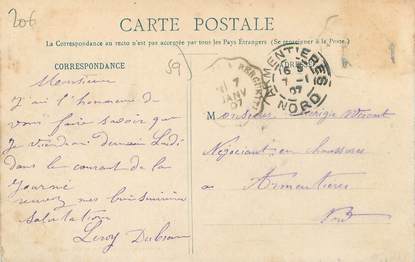 206
CARTE POSTALE
La Correspondance au recto n'est pas acceptée par tous les Pays Étrangers (Se renseigner à la Poste.)
CORRESPONDANCE
59
Monsieur
J'ai l'honneur de
vous faire savoir que
Je viendrai demain Lundi
dans le courant de la
Journé
recevez mes
salutations
Leroy
7
JANV
07
ARMENTIERES
16
7 - 1
07
NORD
Monsieur
Négociant en chaussures
à Armentières
Nord